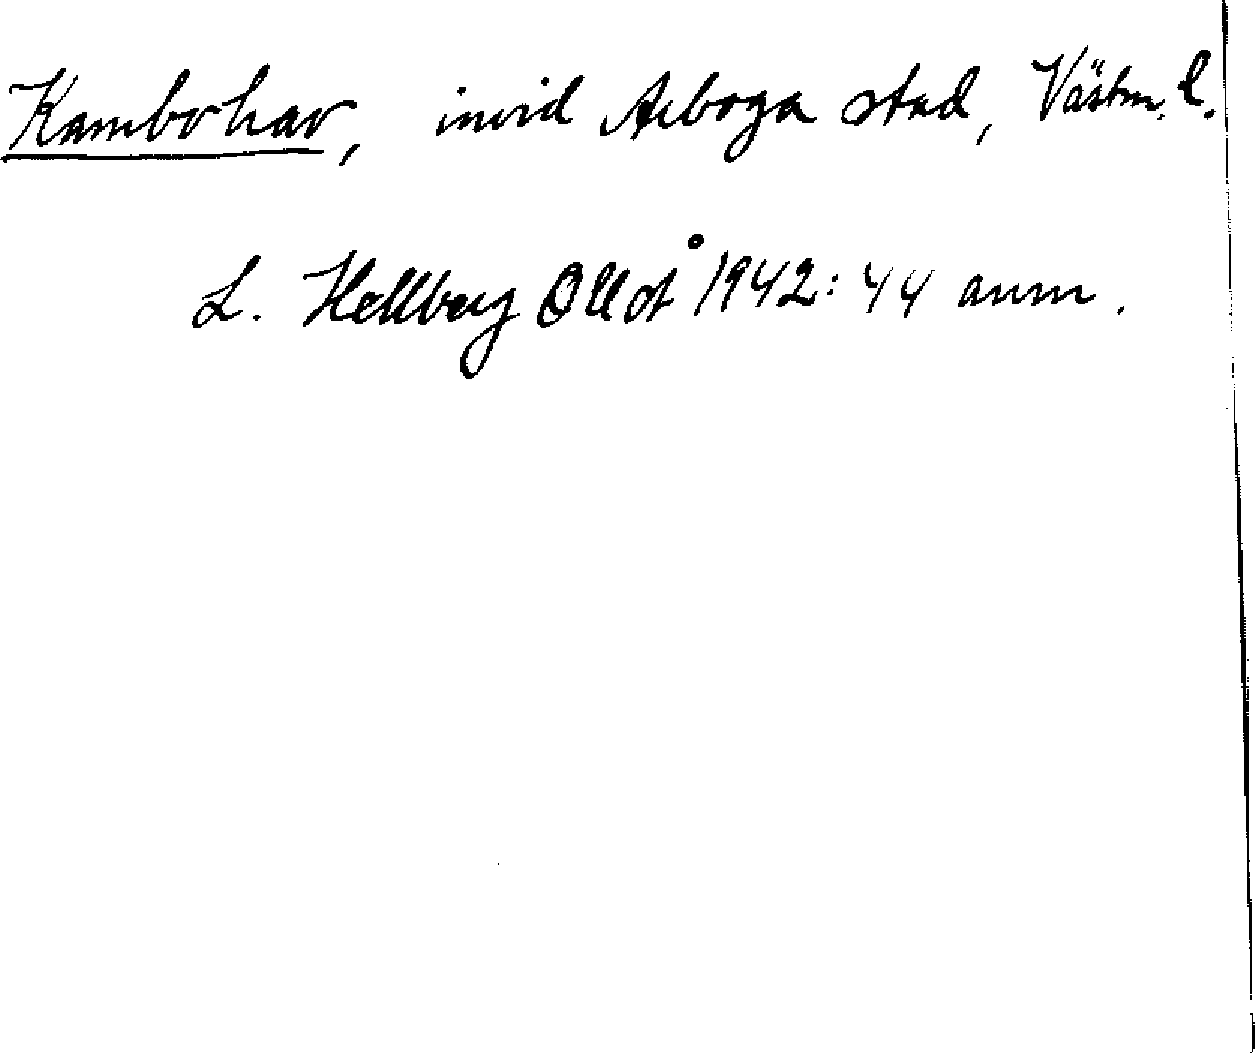 Kambohav, invid Arboga stad, Västm. l.
L. Hellberg ÖLLOÅ 1942: 44 anm.